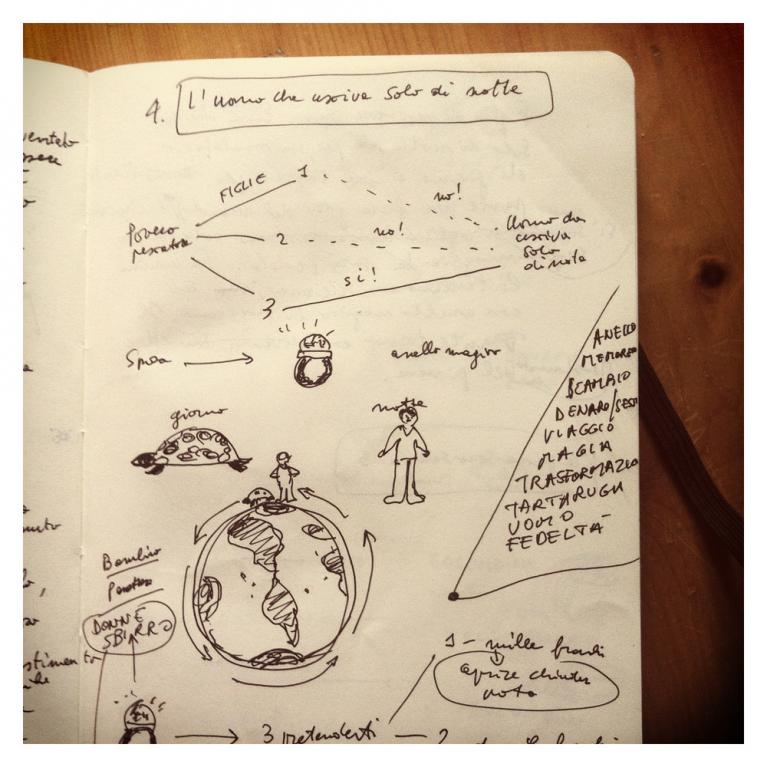 4. L'uomo che usciva solo di notte
FIGLIE 1
no!
Povero
pescatore
2 no!
Uomo che
usciva
solo
di notte
si!
3
Sposa
anello magico
giorno
notte
ANELLO
MEMORE
SCAMBIO
DENARO/SESS
VIAGGIO
MAGIA
TRASFORMAZIO
TARTARUGA
UOMO
FEDELTÀ
Bambino
DONNE
SBIRRO
1 - mille franchi
aprire chiudere
porta
3 pretendenti - 2